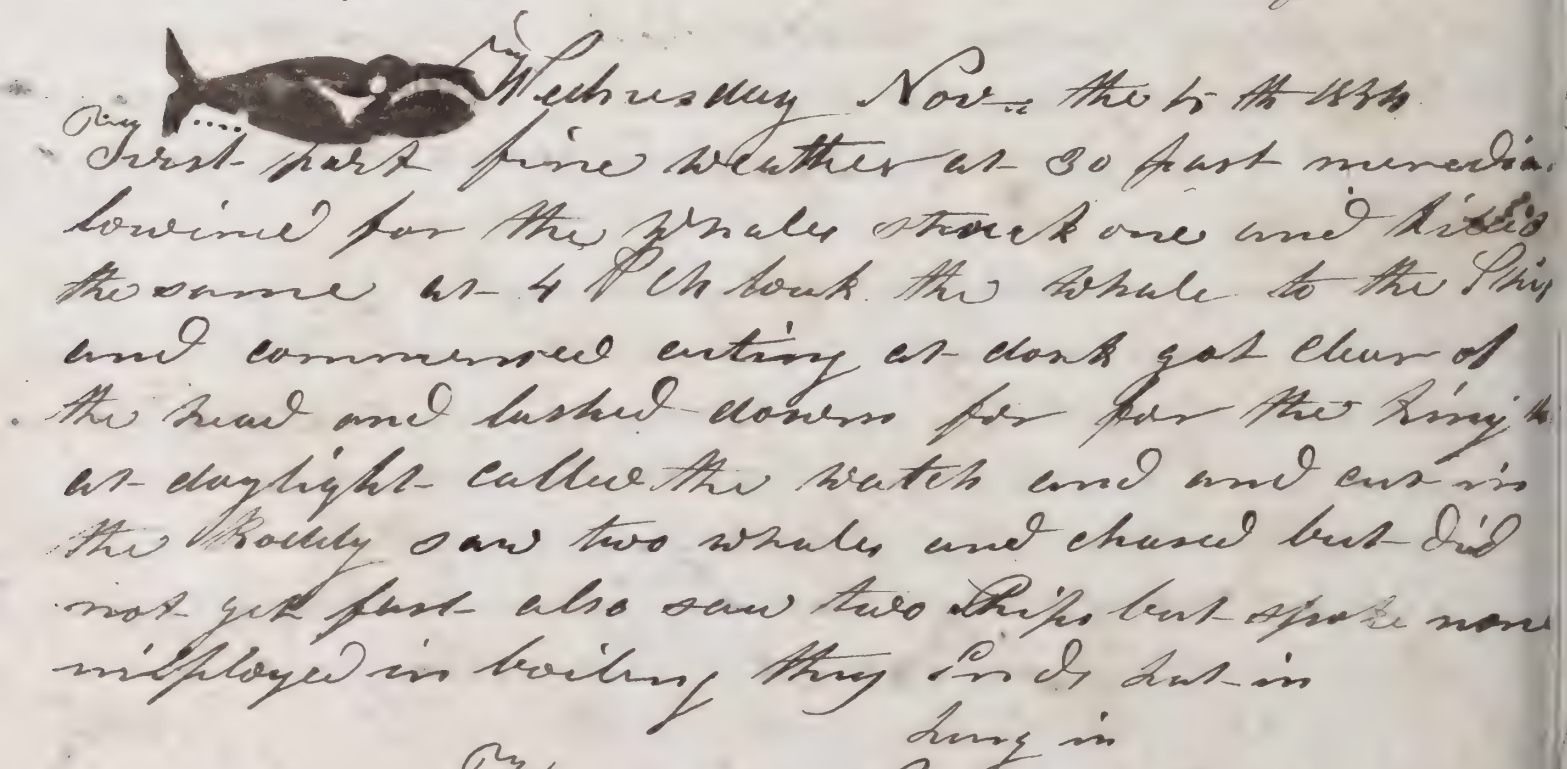 Wednesday Nov the 5 th 1834
First part fine weather at 30 past meredia
lowired for the Whales struck one and killed
the same at 4 P M took the whale to the Ship
and commensed cuting at dark got clear of
the head and lashed down for for the
at daylight called the watch and and cut in
the Boddy saw two whales and chased but did
not get fast also saw two Ships but spoke none
imployed in boiling thuy Ends Lat in
Lung in